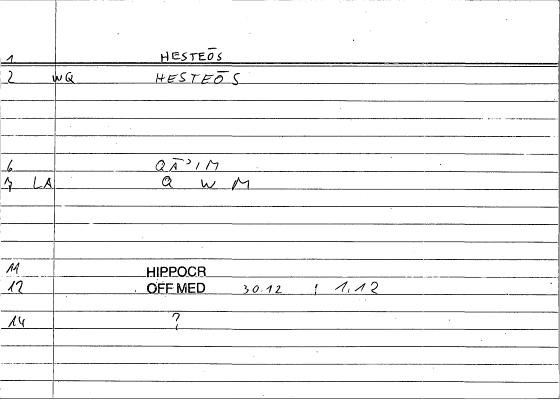 1 HESTEŌS
2 WQ HESTEŌS
6 QĀʾIM
7 LA Q W M
11 HIPPOCR
12 OFF MED 30.12 ; 1.12
14 ?